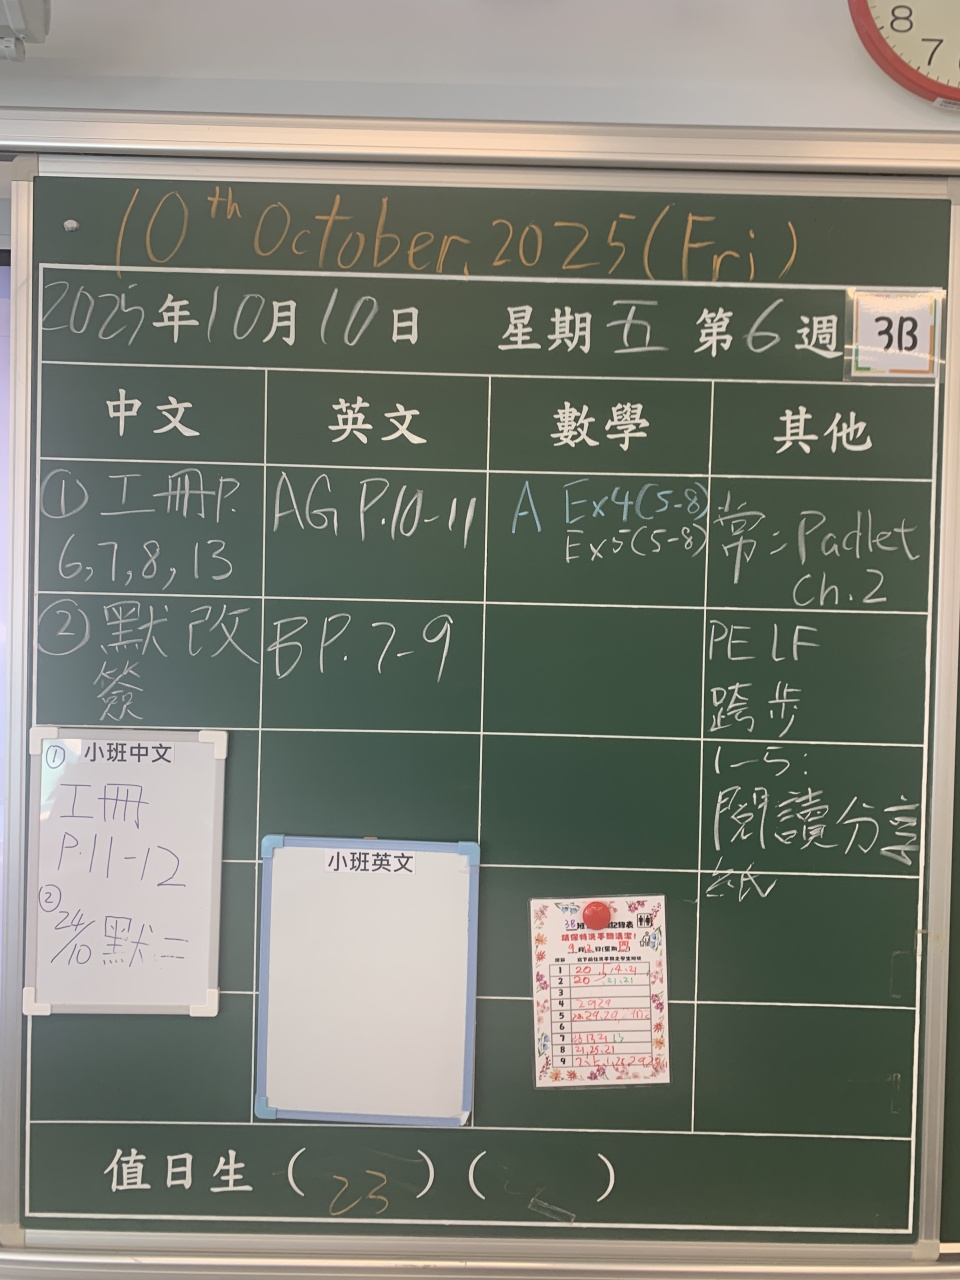 8
7
10th October, 2025 (Fri)
2025年10月10日 星期五 第6週
3B
中文 英文 數學 其他
① 工冊P.
6,7,8,13
② 默改
簽
AG P.10-11
BP. 7-9
A Ex4(5-8)
Ex5(5-8)
常: Padlet
Ch.2
PE LF
跨步
1-5:
閱讀分享
紙
① 小班中文
工冊
P.11-12
②
24/10 默二
小班英文
3B班
記錄表
請保持洗手間清潔!
1 20
2 20
3
4 2929
5
6
7
8 21,25,21
9
值日生 ( 23 ) ( )